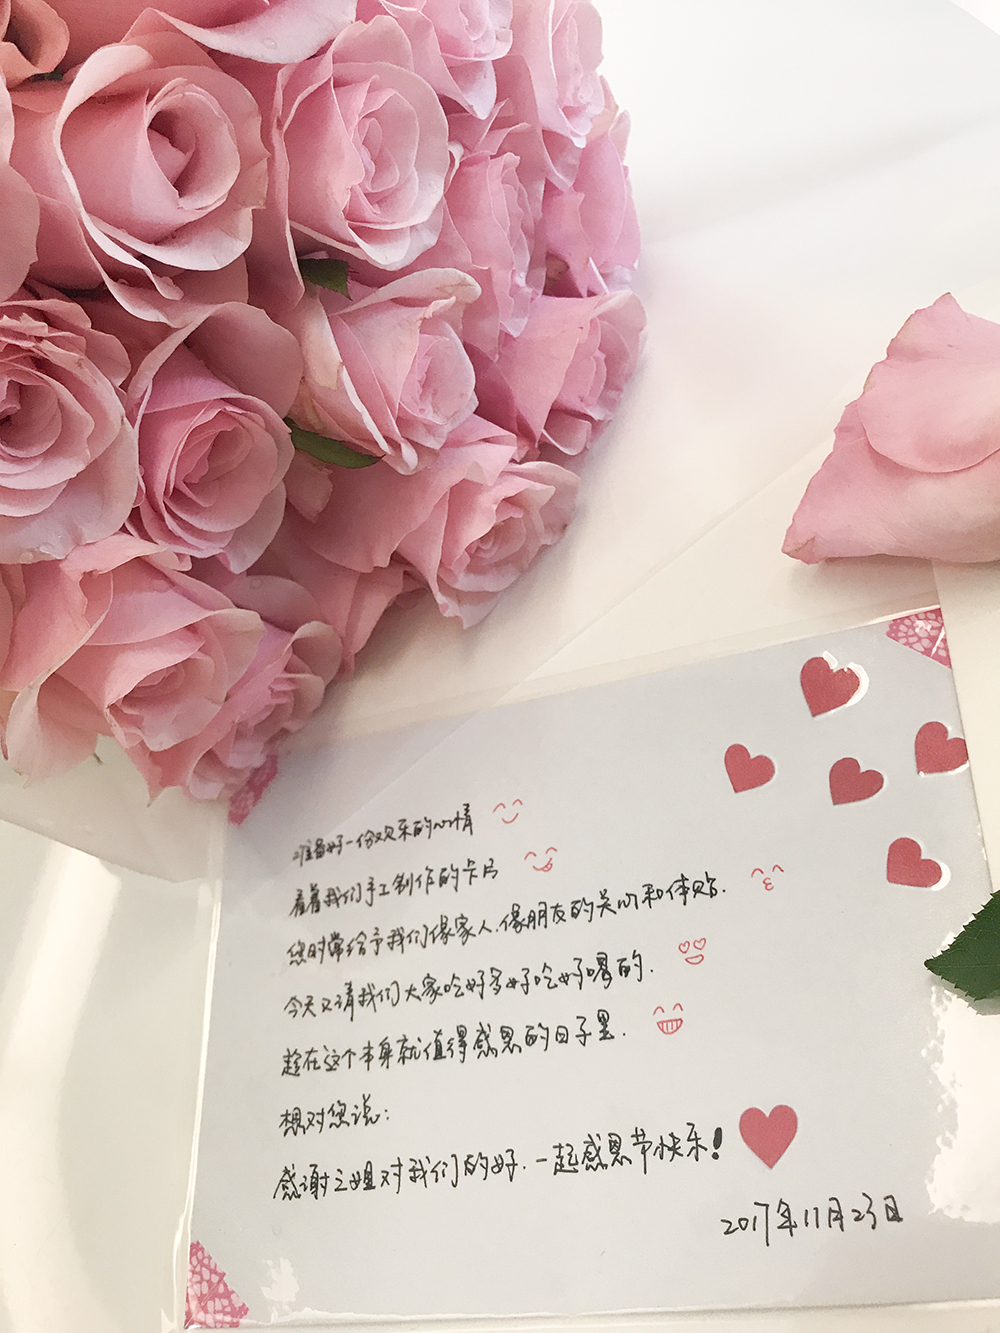 准备好一份欢乐的心情
看着我们手工制作的卡片
您时常给予我们像家人、像朋友的关心和体贴.
今天又请我们大家吃好多好吃好喝的.
趁在这个本身就值得感恩的日子里.
想对您说:
感谢之姐对我们的好.一起感恩节快乐!
2017年11月23日